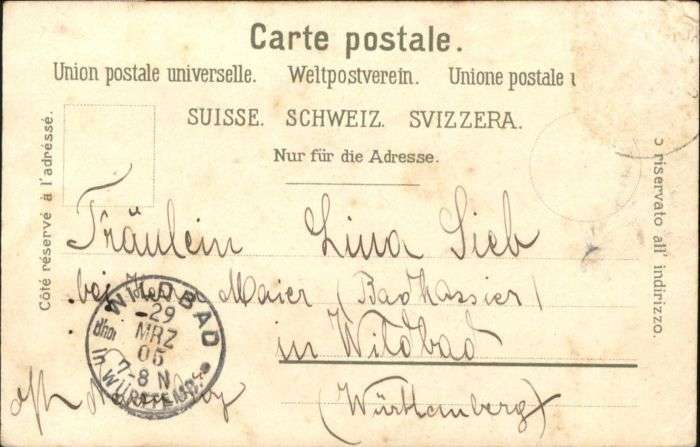 Carte postale.
Union postale universelle. Weltpostverein. Unione postale u
SUISSE. SCHWEIZ. SVIZZERA.
Nur für die Adresse.
Côté réservé à l'adréssé.
o riservato all' indirizzo.
Fräulein Lina Sieb
bei Maier (Badkassier)
in Wildbad
(Württemberg)
WILDBAD
29
MRZ
05
7-8 N
in WÜRTTEMBG.